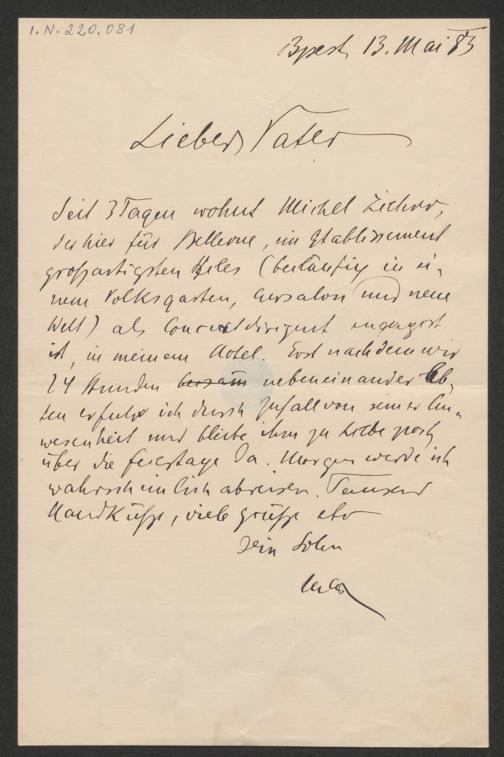 I.N. 220.081
Bpest 13. Mai 83
Lieber Vater
Seit 3 Tagen wohnt Michel Ziehrer,
der hier für Bellevue, ein Etablissement
großartigsten Stiles (beiläufig in ei-
nem Volksgarten, Cursalon und neue
Welt) als Concertdirigent engagirt
ist, in meinem Hotel. Erst nachdem wir
24 Stunden nebeneinander leb-
ten erfuhr ich durch Zufall von seiner An-
wesenheit und bleibe ihm zu Liebe noch
über die Feiertage da. Morgen werde ich
wahrscheinlich abreisen. Tausend
Handküsse, viele Grüße etc
Dein Sohn